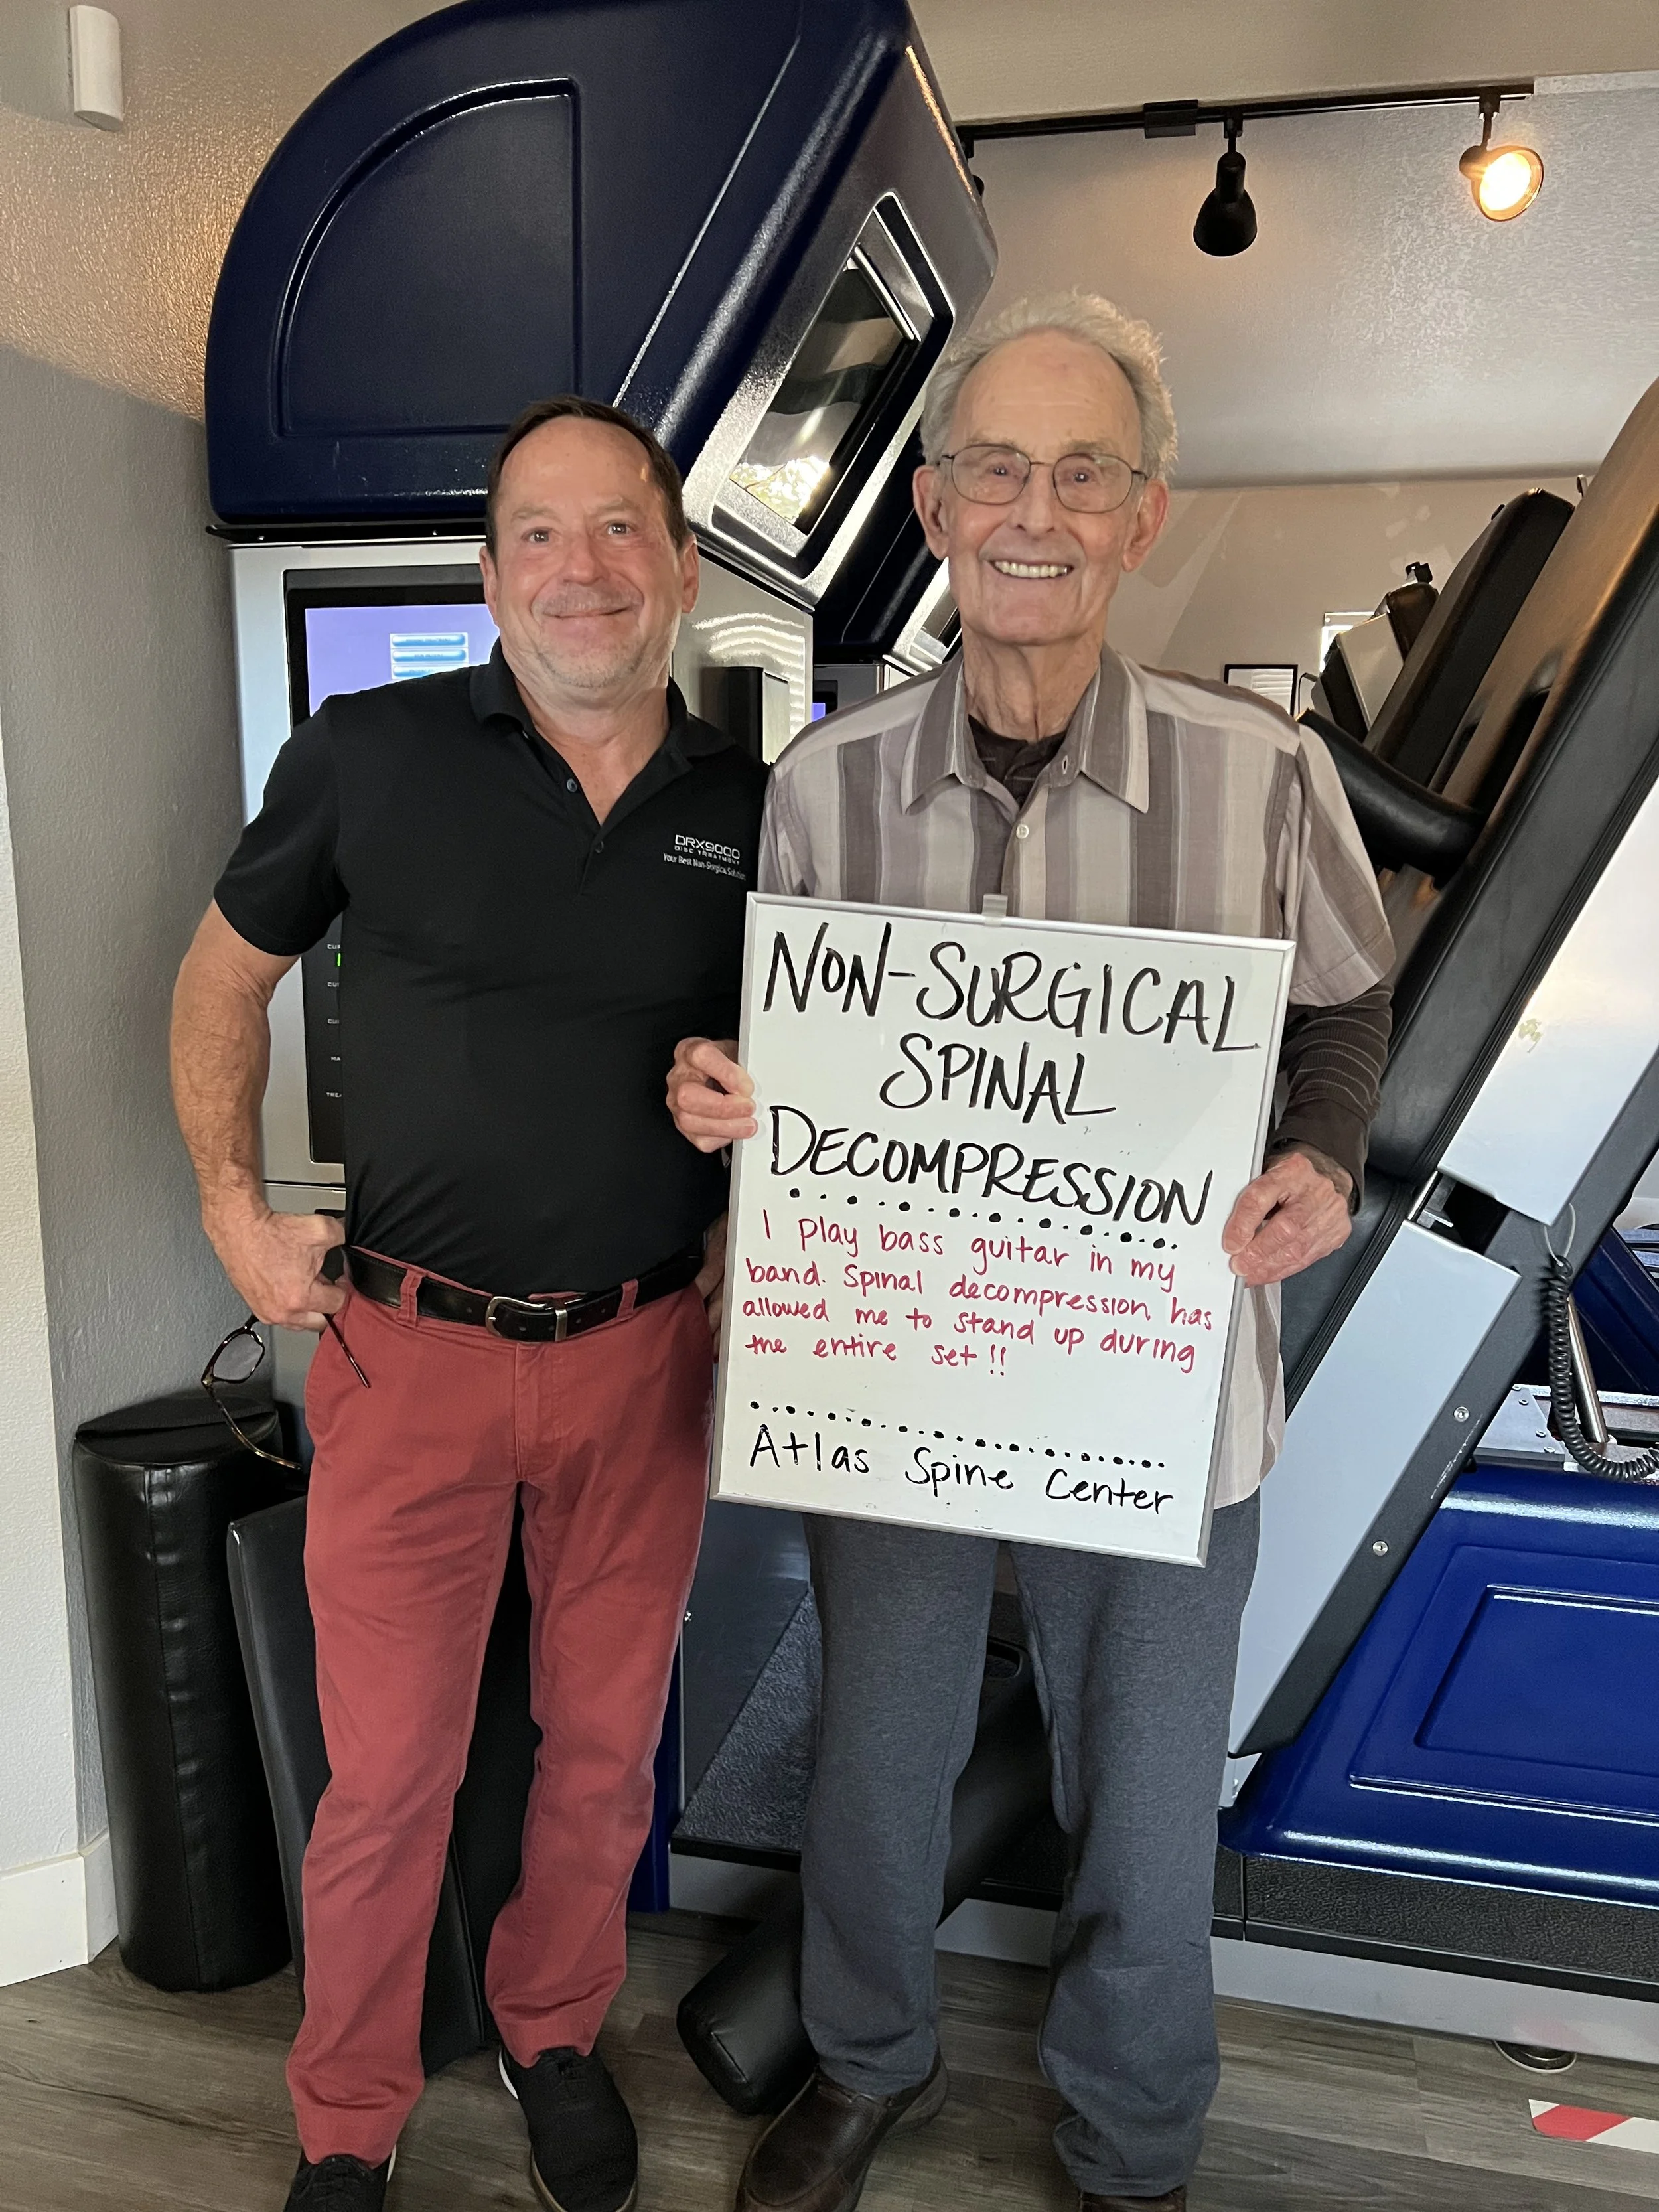 DRX9000
DISC TREATMENT
Your Best Non-Surgical Solution
NON-SURGICAL
SPINAL
DECOMPRESSION
I play bass guitar in my
band. Spinal decompression has
allowed me to stand up during
the entire set!!
Atlas Spine Center